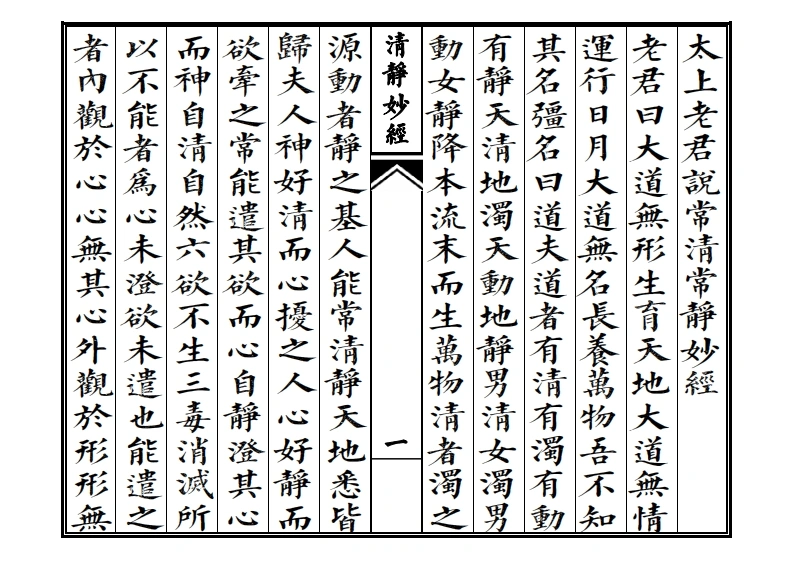 太上老君說常清常靜妙經
老君曰大道無形生育天地大道無情
運行日月大道無名長養萬物吾不知
其名彊名曰道夫道者有清有濁有動
有靜天清地濁天動地靜男清女濁男
動女靜降本流末而生萬物清者濁之
清靜妙經
一
源動者靜之基人能常清靜天地悉皆
歸夫人神好清而心擾之人心好靜而
欲牽之常能遣其欲而心自靜澄其心
而神自清自然六欲不生三毒消滅所
以不能者為心未澄欲未遣也能遣之
者內觀於心心無其心外觀於形形無